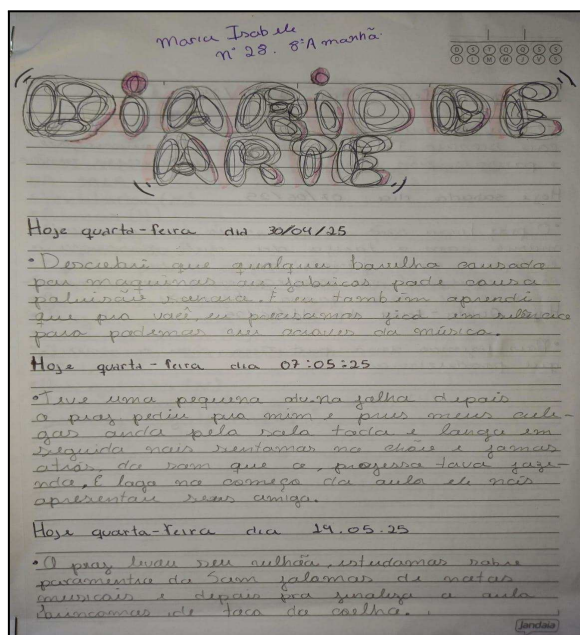 Maria Isabele
n° 28. 8°A manhã.
D S T Q Q S S
D L M M J V S
DiARiO DE
ARTE
Hoje quarta-feira dia 30/04/25
• Descobri que qualquer barulho causado
por maquinas ou fabricas pode causa
poluisão sonora. E eu também aprendi
que pro você, eu precisamos em silêncio
para podemos através da música.
Hoje quarta-feira dia 07:05:25
• Teve uma pequena na folha depois
o prof pediu pro mim e meus cole-
gas anda pela sala toda e em
seguida nois sentamos no chão e fomos
atrás, da som que o, professo tava faze-
ndo, E logo no começo da aula ele nois
apresentau seus amiga.
Hoje quarta-feira dia 14.05.25
• O prof levau seu estudamos sobre
da Som falamos de notas
musicais e depois pra finaliza a aula
brincamos de toca do coelha.
Jandaia